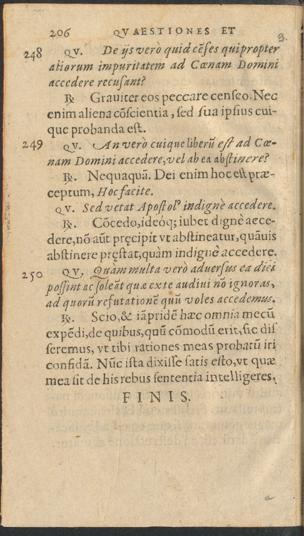 206 QVAESTIONES ET
248 QV. De ijs verò quid cẽses qui propter
aliorum impuritatem ad Cœnam Domini
accedere recusant?
℞. Grauiter eos peccare censeo. Nec
enim aliena cõscientia, sed sua ipsius cui-
que probanda est.
249 QV. An verò cuique liberũ est ad Cœ-
nam Domini accedere, vel ab ea abstinere?
℞. Nequaquã. Dei enim hoc est præ-
ceptum, Hoc facite.
QV. Sed vetat Apostolꝰ indignè accedere.
℞. Cõcedo, ideóq; iubet dignè acce-
dere, nõ aũt pręcipit vt abstineatur, quãuis
abstinere pręstat, quàm indignè accedere.
250 QV. Quàm multa verò aduersus ea dici
possint ac soleãt quæ ex te audiui nõ ignoras,
ad quorũ refutationẽ quũ voles accedemus.
℞. Scio, & iãpridẽ hæc omnia mecũ
expẽdi, de quibus, quũ cõmodũ erit, sic dis
seremus, vt tibi rationes meas probatũ iri
confidã. Nũc ista dixisse satis esto, vt quæ
mea sit de his rebus sententia intelligeres.
FINIS.